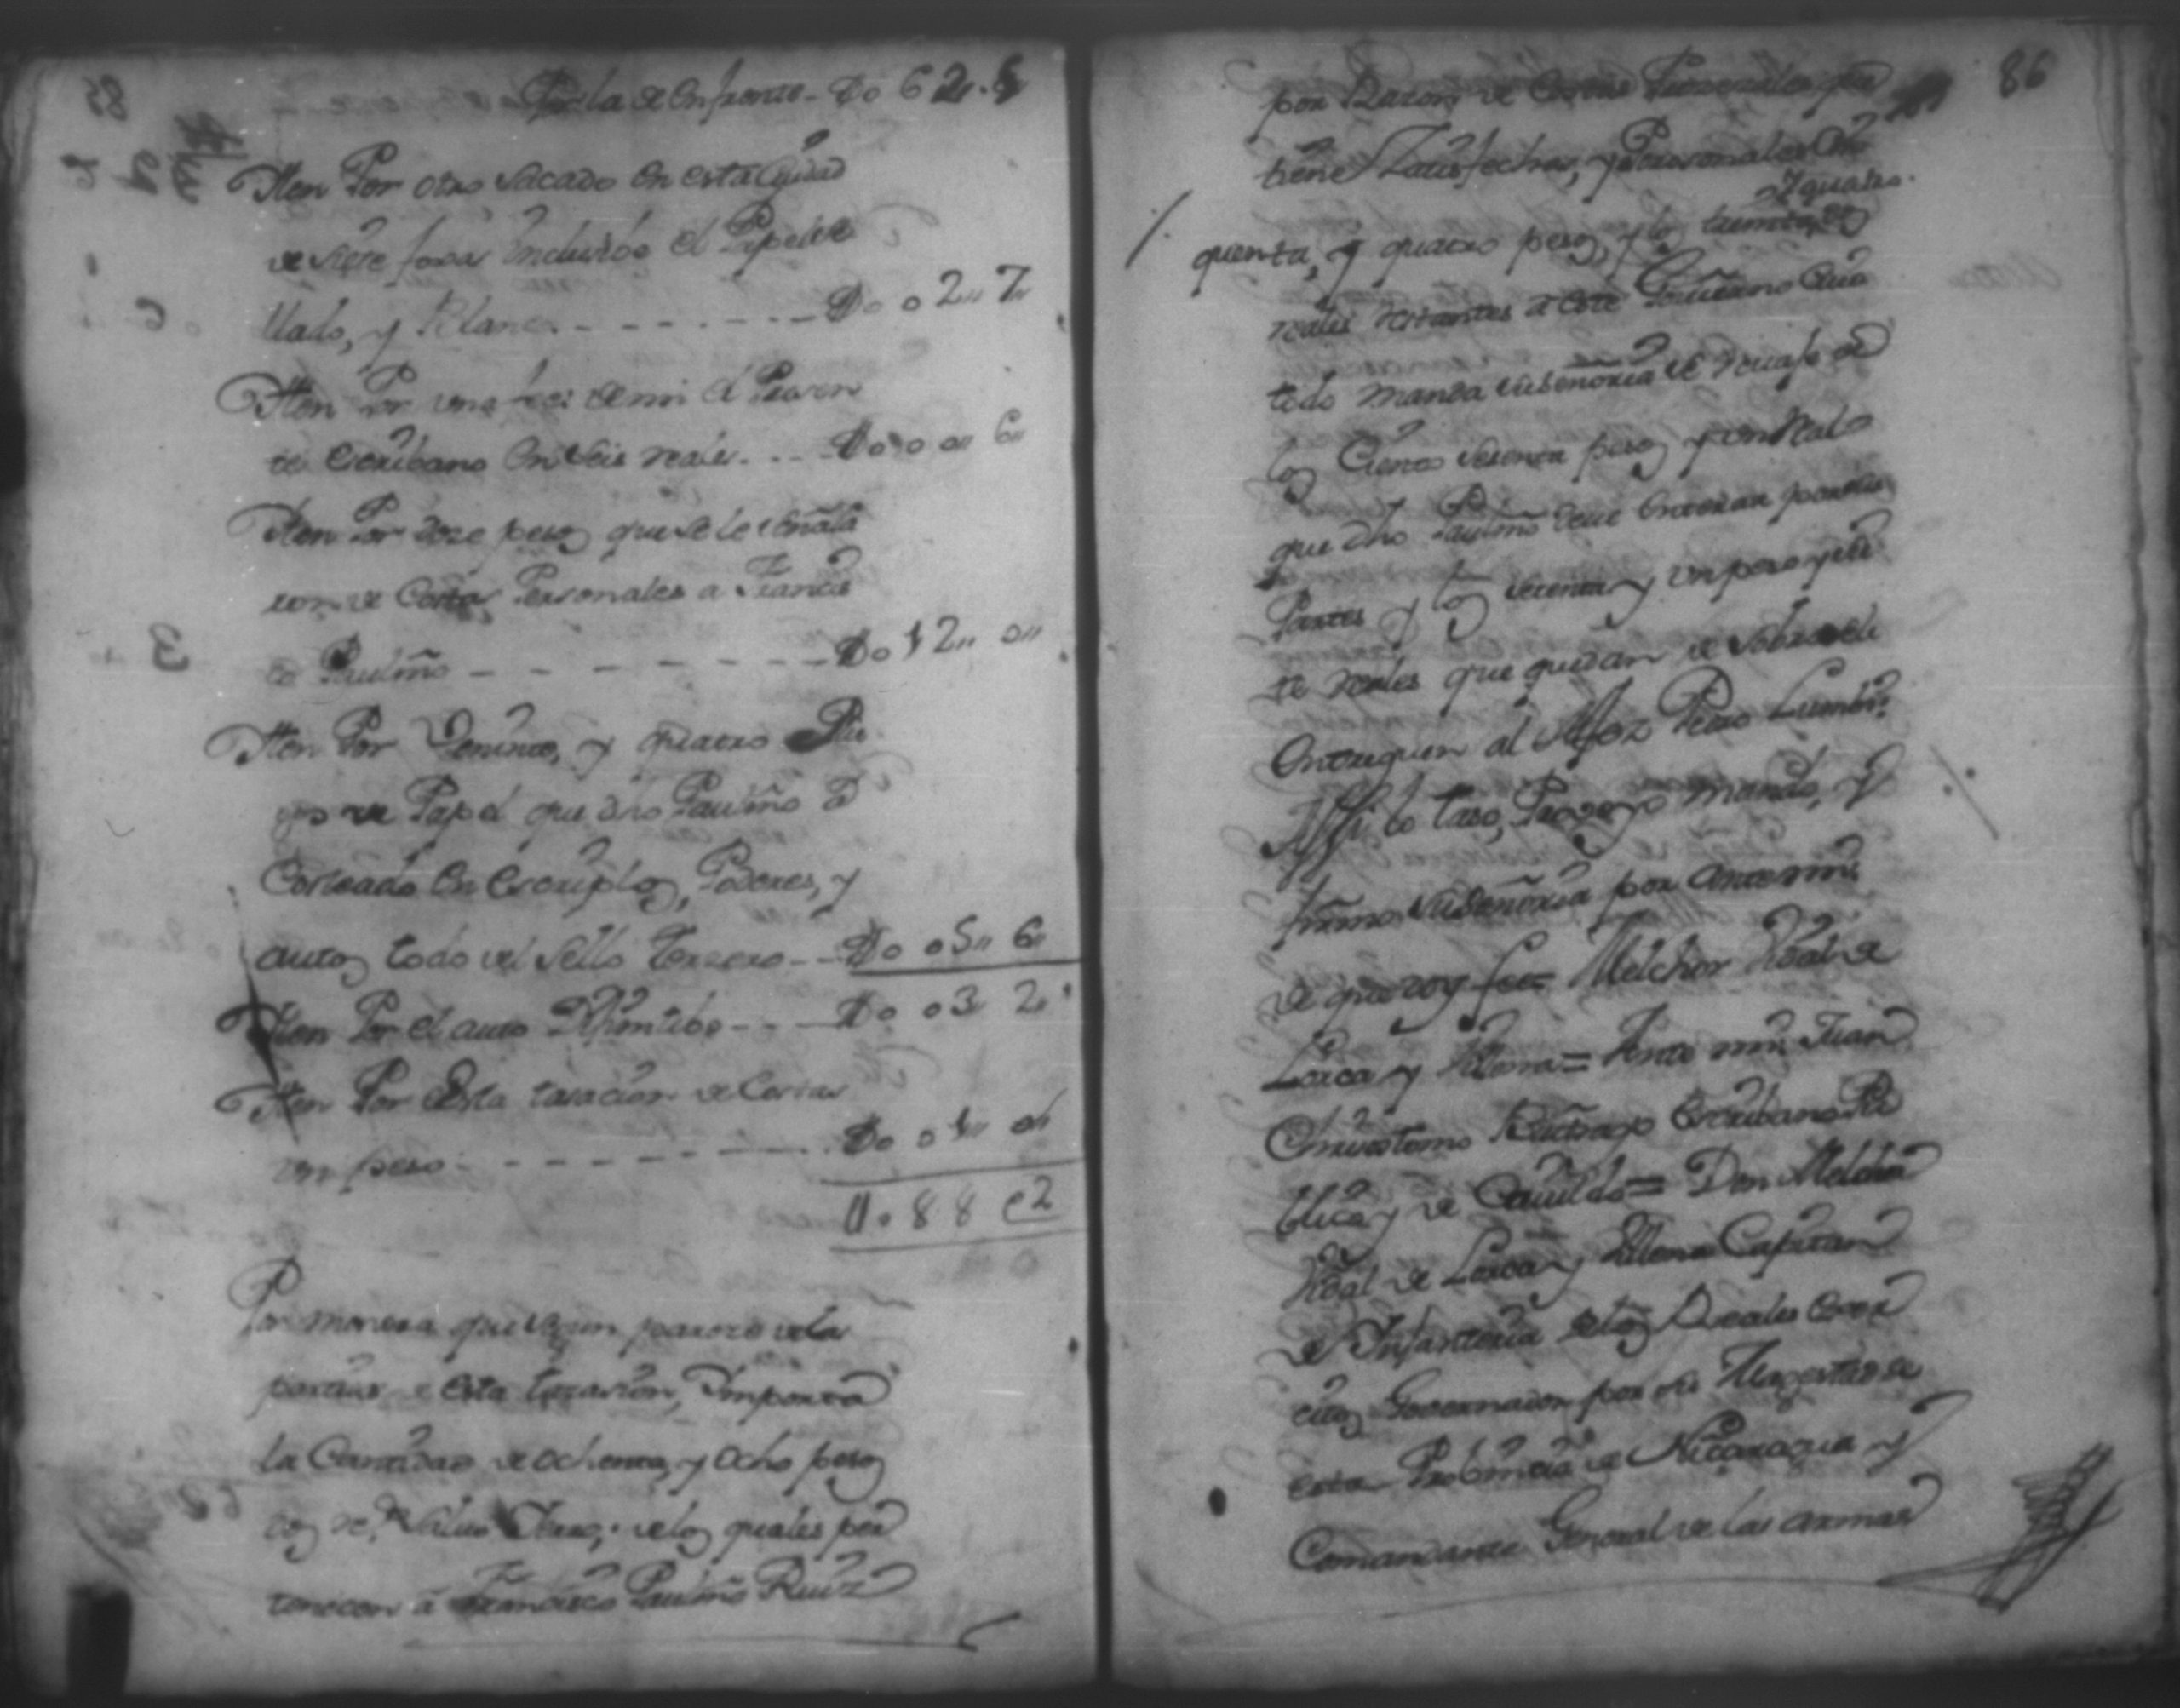 Por la de enfrente - Do 62.. 5
Iten Por otro sacado en esta Ciudad
de siete foxas Incluido el Papel se
llado, y Blanco - - - - - - - Do 02.. 7..
Iten Por una de mi el Presen
te Escribano en seis reales - - - Do 00.. 6..
Iten Por doze pesos que se le señala
ron de Costas Personales a Francis
co Pauliño - - - - - - - Do 12.. 0..
Iten Por Veinte, y quatro Plie
gos de Papel que dho Pauliño a
Costeado en escriptos, Poderes, y
autos todo del sello tersero - - Do 05.. 6..
Iten Por el auto Difinitibo - - - Do 03 2..
Iten Por esta tasacion de Costas
un peso - - - - - - - - Do 01.. 0..
88 2
Por manera que segun parece de las
partidas de esta tasasion, Importa
la Cantidad de ochenta, y ocho pesos
dos rs. de los quales per
tenecen a Francisco Pauliño Ruiz
86
por Razon de Costas Prosesales que
tiene Satisfechas, y Personales Cin
quenta, y quatro pesos, y los treinta, y quatro. dos
reales restantes a este Govierno Cuio
todo manda su señoria se revaje de
los Ciento sesenta pesos y un Real
que dho Pauliño deve enterar por
Partes y los setenta y un peso y sie
te reales que quedan de sobra se le
entreguen al Alfez Pedro
Assi lo taso, Proveyo mando, y
firmo su Señoria por ante mi
de que doy fee = Melchor Vidal de
Lorca y Villena = Ante mi Juan
Chrisostomo Buitrago Escribano Pu
blico y de Cavildo = Don Melchor
Vidal de Lorca y Villena Capitan
de Infanteria de los Reales exer
citos Governador por su Magestad de
esta Probincia de Nicaragua y
Comandante General de las armas